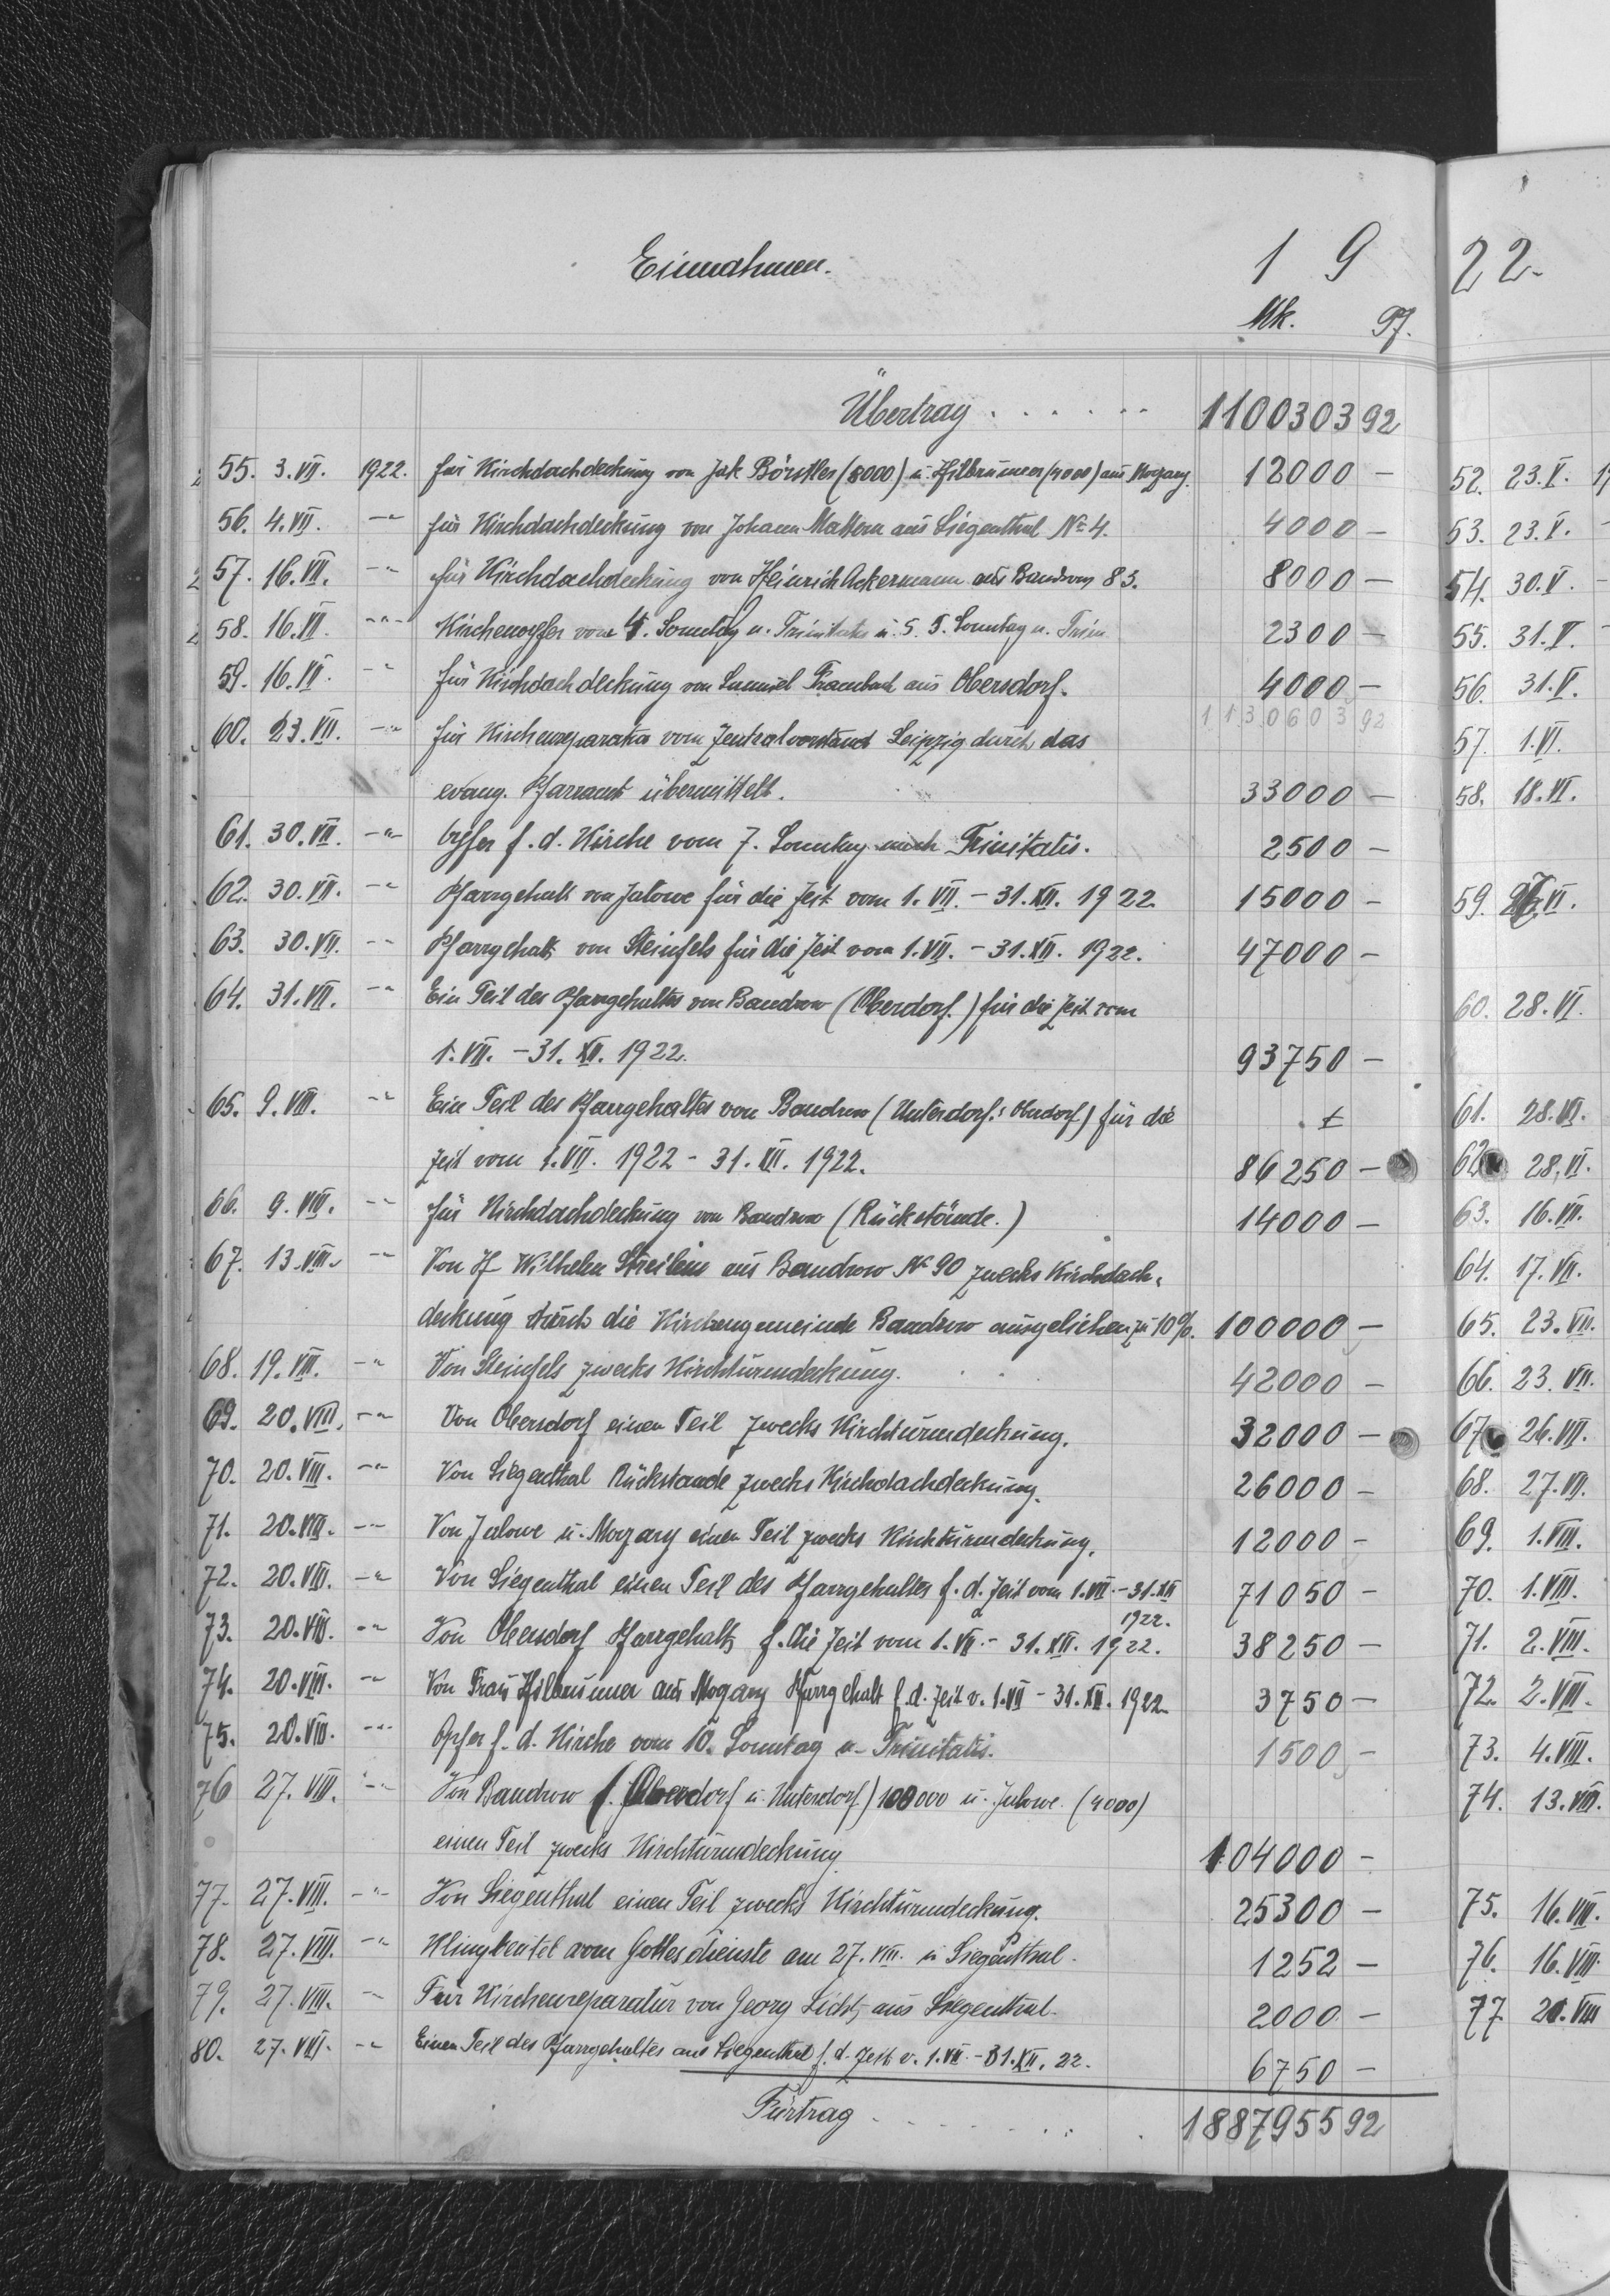 Einnahmen. 1 9 22.
Mk. Pf.
Übertrag . . . . . . 1100303 92
55. 3.VII. 1922. für Kirchdachdeckung von Jak Börstler (8000) u. Hilbrunner (4000) aus Mozary. 12000 —
56. 4.VII. -"- für Kirchdachdeckung von Johann Mattern aus Siegenthal No 4. 4000 —
57. 16.VII. -"- für Kirchdachdeckung von Heinrich Ackermann aus Bandrow 83. 8000 —
58. 16.VII. -"- Kirchenopfer vom 4. Sonntag n. Trinitatis u. 5. Sonntag n. Trin 2300 —
59. 16.VII. -"- für Kirchdachdeckung von Samuel aus Obersdorf. 4000 —
1130603 92
60. 23.VII. -"- für Kirchenreparatur vom Zentralvorstand Leipzig durch das
evang. Pfarramt übermittelt. 33000 —
61. 30.VII. -"- Opfer f. d. Kirche vom 7. Sonntag nach Trinitatis. 2500 —
62. 30.VII. -"- Pfarrgehalt von Jalowe für die Zeit vom 1.VII. – 31.XII. 1922 15000 —
63. 30.VII. -"- Pfarrgehalt von Steinfels für die Zeit vom 1.VII. – 31.XII. 1922. 47000 —
64. 31.VII. -"- Ein Teil des Pfarrgehaltes von Bandrow (Oberdorf.) für die Zeit vom
1.VII. – 31.XII. 1922. 93750 —
65. 9.VIII. -"- Ein Teil des Pfarrgehaltes von Bandrow (Unterdorf. Oberdorf.) für die
Zeit vom 1.VII. 1922 – 31.XII. 1922. 86250 —
66. 9.VIII. -"- für Kirchdachdeckung von Bandrow (Rückstände.) 14000 —
67. 13.VIII. -"- Von H Wilhelm aus Bandrow No 90 zwecks Kirchdach-
deckung durch die Kirchengemeinde Bandrow ausgeliehen zu 10%. 100000 —
68. 19.VIII. -"- Von Steinfels zwecks Kirchturmdeckung. 42000 —
69. 20.VIII. -"- Von Obersdorf einen Teil zwecks Kirchturmdeckung. 32000 —
70. 20.VIII. -"- Von Siegenthal Rückstande zwecks Kirchdachdeckung. 26000 —
71. 20.VIII. -"- Von Jalowe u. Mozary einen Teil zwecks Kirchturmdeckung. 12000 —
72. 20.VIII. -"- Von Siegenthal einen Teil des Pfarrgehaltes f. d. Zeit vom 1.VII. – 31.XII 71050 —
1922.
73. 20.VIII. -"- Von Obersdorf Pfarrgehalt f. die Zeit vom 1.VII. – 31.XII. 1922. 38250 —
74. 20.VIII. -"- Von Frau Hilbrunner aus Mozary Pfarrgehalt f. d. Zeit v. 1.VII – 31.XII. 1922 3750 —
75. 20.VIII. -"- Opfer f. d. Kirche vom 10. Sonntag n. Trinitatis. 1500 —
76 27.VIII. -"- Von Bandrow (Oberdorf u. Unterdorf) 100000 u. Jalowe (4000)
einen Teil zwecks Kirchturmdeckung 104000 —
77. 27.VIII. -"- Von Siegenthal einen Teil zwecks Kirchturmdeckung. 25300 —
78. 27.VIII. -"- Klingbeutel vom Gottesdienste am 27.VIII. in Siegenthal. 1252 —
79. 27.VIII. -"- Für Kirchenreparatur von Georg Licht, aus Siegenthal. 2000 —
80. 27.VIII. -"- Einen Teil des Pfarrgehaltes aus Siegenthal f. d. Zeit v. 1.VII. – 31.XII. 22. 6750 —
Fürtrag . . . . . . 1887955 92
52. 23.V.
53. 23.V.
54. 30.V.
55. 31.V.
56. 31.V.
57. 1.VI.
58. 18.VI.
59. 27.VI.
60. 28.VI.
61. 28.VI.
62. 28.VI.
63. 16.VII.
64. 17.VII.
65. 23.VII.
66. 23.VII.
67. 26.VII.
68. 27.VII.
69. 1.VIII.
70. 1.VIII.
71. 2.VIII.
72. 2.VIII.
73. 4.VIII.
74. 13.VIII.
75. 16.VIII.
76. 16.VIII
77 20.VIII